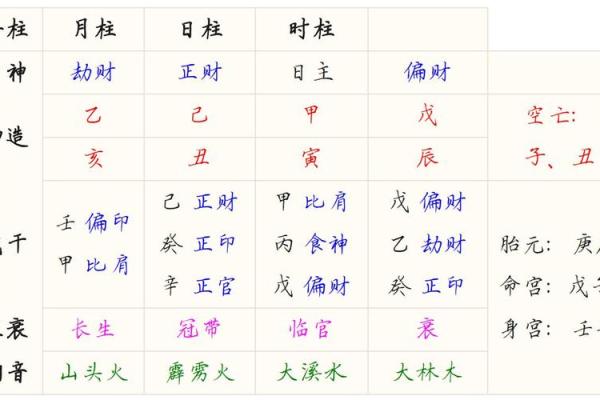 柱 月柱 日柱 时柱
神 劫财 正财 日主 偏财
乙 己 甲 戊 空亡:
造
亥 丑 寅 辰 子、丑
己 正财 甲 比肩 戊 偏财
壬 偏印
干 癸 正印 丙 食神 乙 劫财 胎元: 庚
甲 比肩
辛 正官 戊 偏财 癸 正印 命宫: 戊
衰 长生 冠带 临官 衰 身宫: 壬
音 山头火 霹雳火 大溪水 大林木